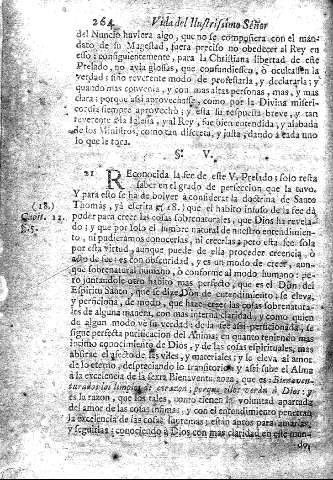 264 Vida del Ilustrissimo Señor
del Nuncio haviera algo, que no se compusiera con el man-
dato de su Magestad, fuera preciso no obedecer al Rey en
esso; consiguientemente, para la Christiana libertad de este
Prelado, no avia glossas, que confundiessen, ò ocultassen la
verdad; sino reverente modo de professarla, y declararla; y
quando mas convenia, y con mas altas personas, mas, y mas
clara: porque assi aprovechasse, como por la Divina miseri-
cordia siempre aprovechò; y esta su respuesta breve, y tan
reverente à la Iglesia, y al Rey, fue bien entendida, y alabada
de los Ministros, como tan discreta, y justa, dando à cada uno
lo que le toca.
§. V.
21 REconocida la fee de este V. Prelado; solo resta
saber en el grado de perfeccion que la tuvo.
Y para esso se ha de bolver à considerar la doctrina de Santo
(18.) Thomàs, yà escrita (18.) que el habito infuso de la fee dà
Capit. 12. poder para creer las cosas sobrenaturales, que Dios ha revela-
§. 5. do; y que por solo el lumbre natural de nuestro entendimien-
to, ni pudieramos conocerlas, ni creerlas; pero esta fee sola
por esta virtud, aunque puede de ella proceder creencia, ò
acto de fee; es con obscuridad, y es un modo de creer, aun-
que sobrenatural humano, ò conforme al modo humano: pe-
ro juntandole otro habito mas perfecto, que es el Dòn del
Espiritu Santo, que se dize Dòn de entendimiento, se eleva,
y perficiona, de modo, que haze creer las cosas sobrenatura-
les de alguna manera, con mas interna claridad, y como quien
de algun modo vè la verdad: de la fee assi perficionada, se
sigue perfecta purificacion del Anima; en quanto teniendo mas
intimo conocimiento de Dios, y de las cosas espirituales, mas
aborrece el afecto de las viles, y materiales; y se eleva al amor
de lo eterno, despreciando lo transitorio; y assi sube el Alma
à la excelencia de la sexta Bienaventuranza, que es Bienaven-
turados los limpios de corazon, porque ellos verán à Dios: y
es la razon, que los tales, como tienen la voluntad apartada
del amor de las cosas infimas; y con el entendimiento penetran
la excelencia de las cosas supremas; estàn aptos para amarlas,
y seguirlas; conociendo à Dios con mas claridad en este mun-
do,